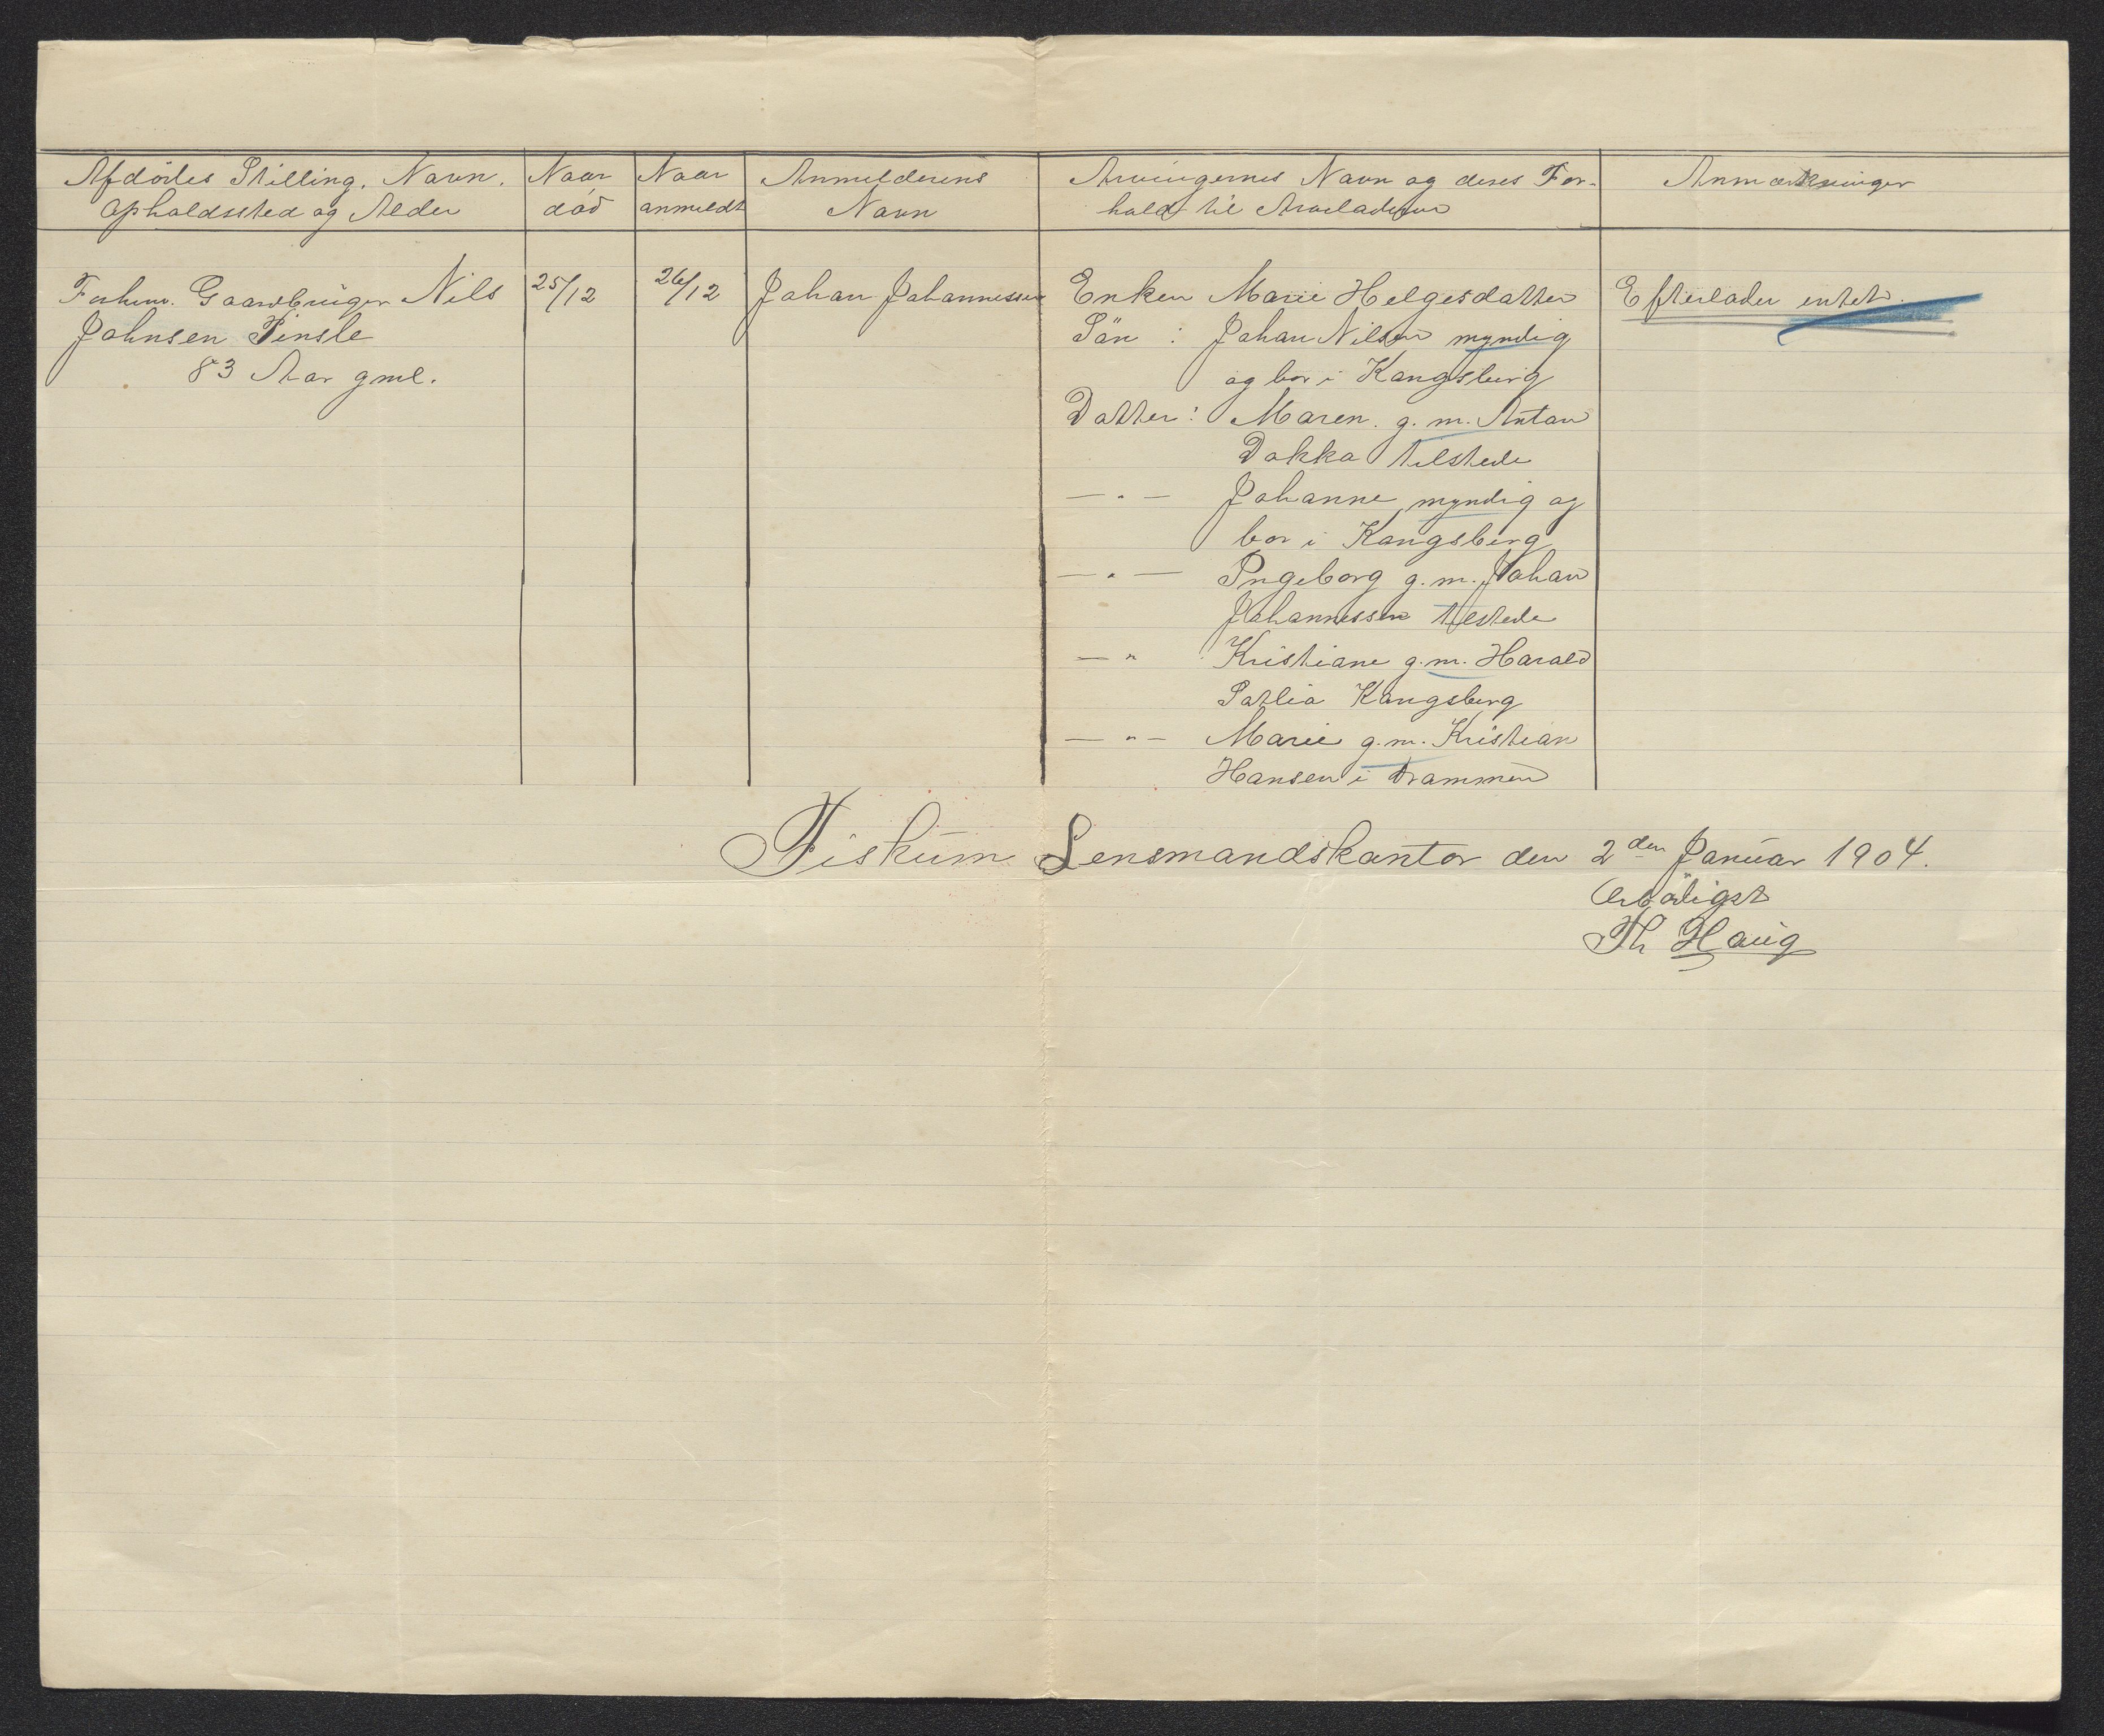 Afdödes Stilling, Navn, Opholdssted og Alder
Naar död
Naar anmeldt
Anmelderens Navn
Arvingernes Navn og deres Forhold til Arveladeren
Anmærkninger
Forhenv. Gaardbruger Nils
Johnsen Tinsle
83 Aar gml.
25/12
26/12
Johan Johannessen
Enken Marie Helgesdatter
Sön : Johan Nilsen myndig
og bor i Kongsberg
Datter : Maren g. m. Anton
Dokka tilstede
— " — Johanne myndig og
bor i Kongsberg
— " — Ingeborg g. m. Johan
Johannessen tilstede
— " Kristiane g. m. Harald
Satlia Kongsberg
— " — Marie g. m. Kristian
Hansen i Drammen
Efterlader intet.
Fiskum Lensmandskontor den 2den Januar 1904.
Ærbödigst
Th Haug